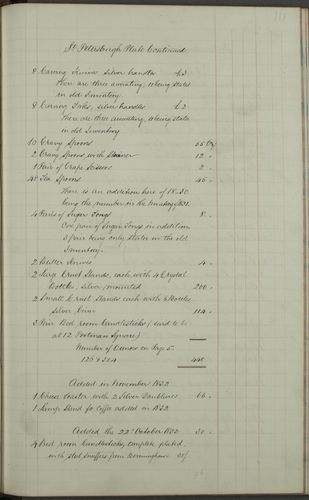 St Petersburgh Plate Continued
8 Carving Knives silver handles £3
There are three awaiting, 11 being stated
in old Inventory.
8 Carving Forks, silver handles £2
There are three awaiting, 11 being stated
in old Inventory
10 Gravy Spoons 55 Oz
2 Gravy Spoons, with Strainer 12 "
1 Pair of Grape Scissors 2 "
48 Tea Spoons 45 "
There is an addition here of 18. 30
being the number in the
4 Pairs of Sugar Tongs 8 "
One pair of Sugar Tongs in addition
3 pair being only stated in the old
Inventory.
2 Butter Knives 4 "
2 Large Cruet Stands, each with 4 Crystal
Bottles, silver mounted 200 "
2 Small Cruet Stands each with 6 Bottles
Silver 114 "
3 Pair Bed room Candlesticks (said to be
at 12 Portman Square)
Number of Ounces on Page 5.
125 & 314 440
Added in November 1832
1 Cheese Toaster with 2 Silver 66 "
1 Lamp Stand for Coffee added in 1832
Added the 22d October 1802 30 "
4 Bed room Candlesticks, complete plated,
with Steel Snuffers from Birmingham